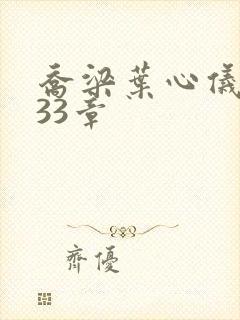 喬梁葉心儀
33章
齊優